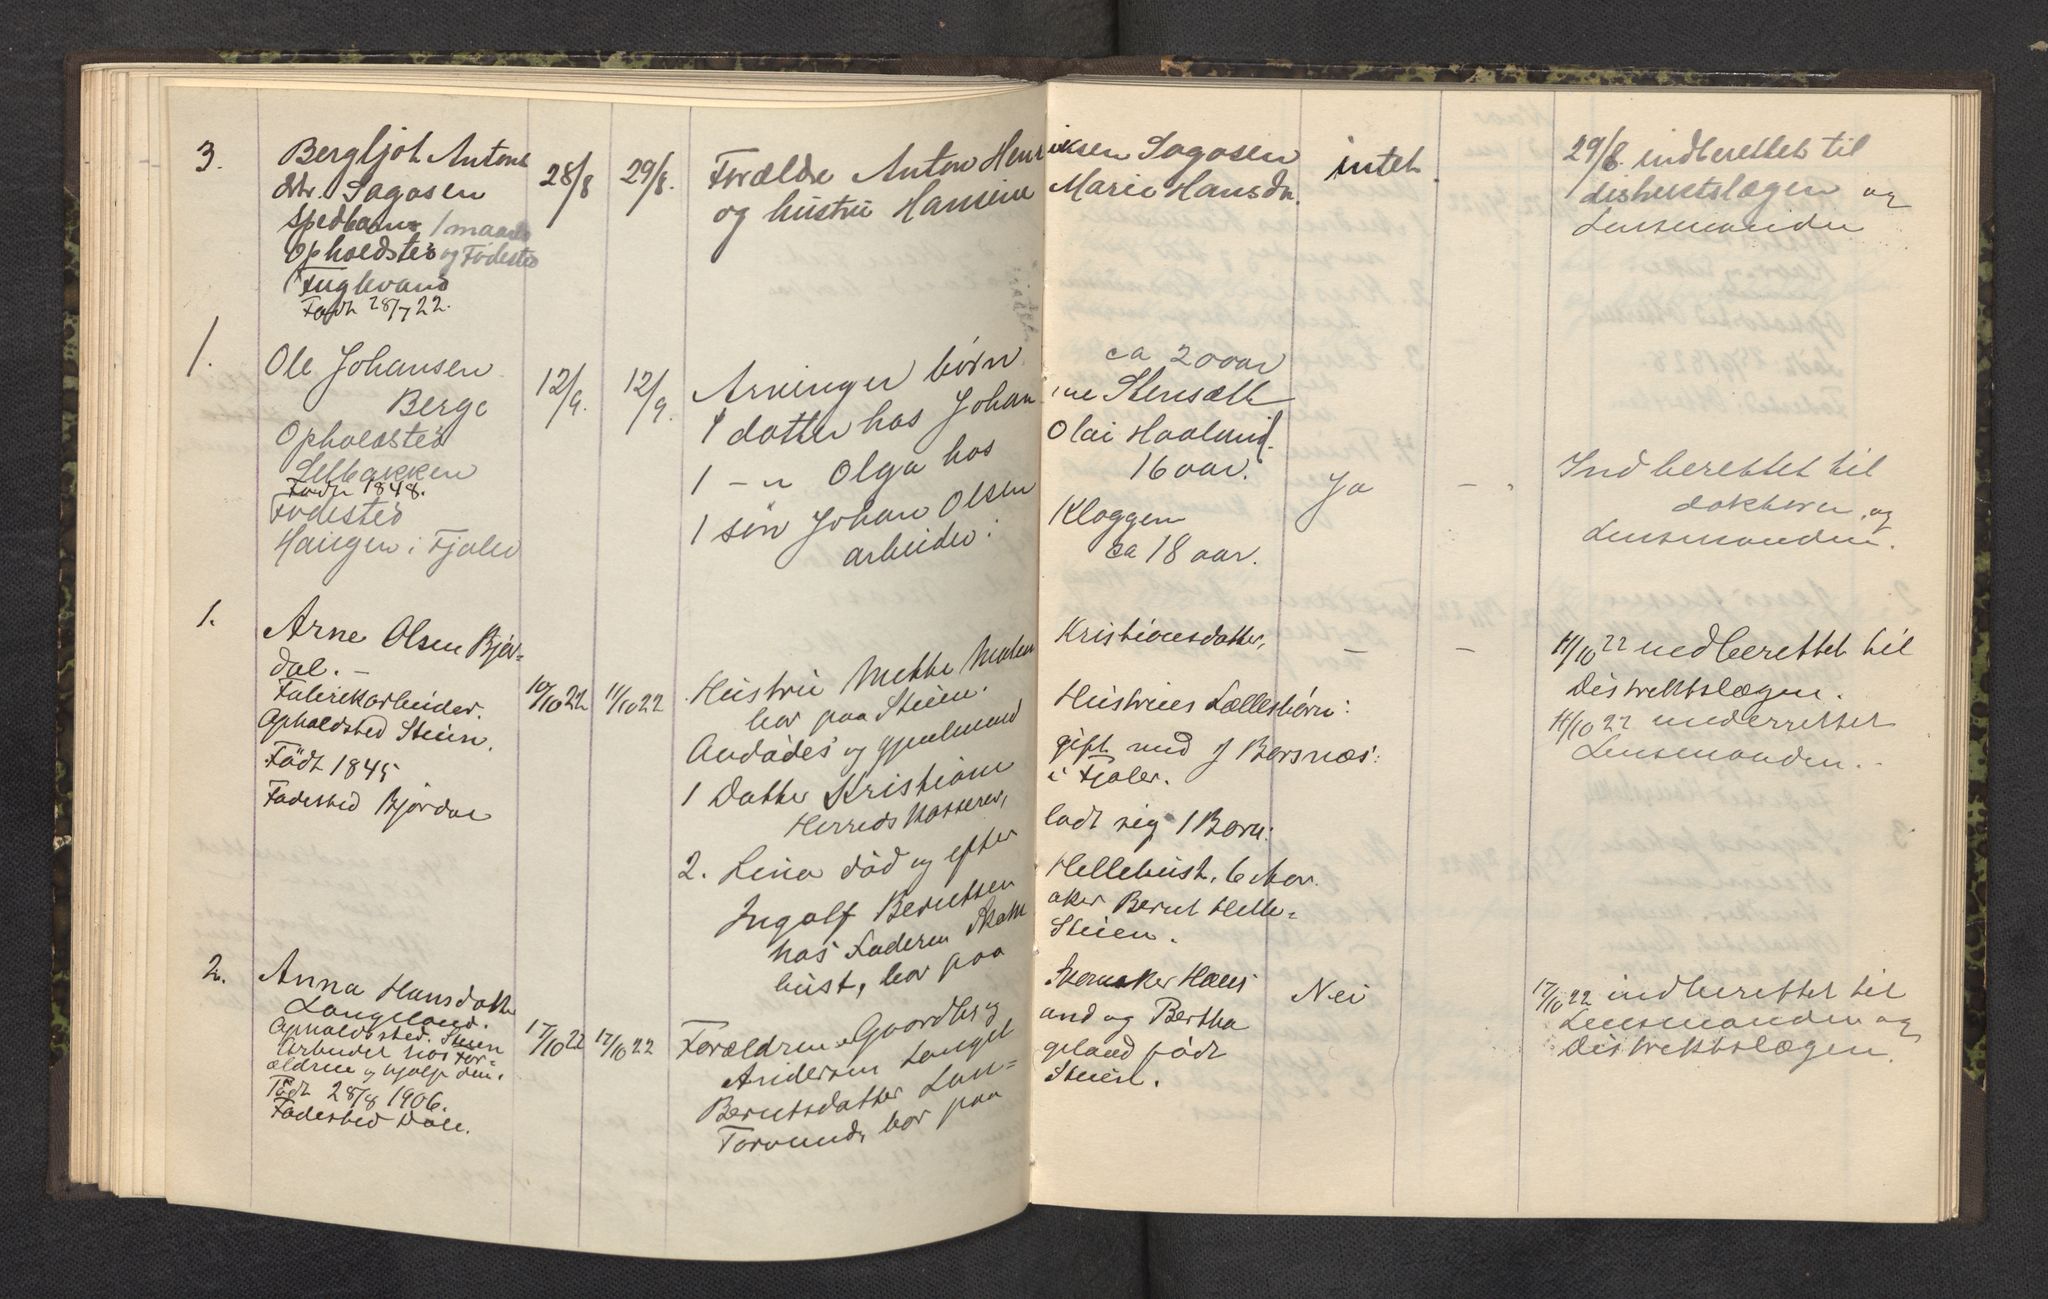 3. Bergljot Antons
dtr. Sagosen
spedbarn 1 maaned
Opholdsted og Fødested
Fuglevand
Født 28/7 22.
28/8 29/8.
Forældre Anton Henriksen Sagosen
og hustru Hansine Marie Hansdtr.
intet.
29/8. indberettet til
distriktslægen og
Lensmanden
1. Ole Johansen
Berge
Opholdsted
Født 1848.
Fødested
Haugen i Fjaler
12/9. 12/9.
Arvinger børn ca 20 aar
1 datter hos Johanne Stensæth
1 -"- Olga hos Olai Haaland.
16 aar.
1 søn Johan Olsen Kloggen
arbeider: ca 18 aar.
Ja - .
Indberettet til
doktoren og
Lensmanden.
1. Arne Olsen Bjør=
dal. -
Fabrikarbeider.
Opholdsted Steien.
Født 1845
Fødested Bjørdal
10/10 22 11/10 22
Hustru Mette Malene Kristiansdatter,
bor paa Steien.
Avdødes og gjenlevend Hustrues Fællesbørn:
1 Datter Kristiane gift med J Borsnæs:
Herredskasserer, i Fjaler.
2. Lina død og efterladt sig 1 Barn:
Ingolf Berntsen Hellebust,
hos Faderen Skomaker Bernt Helle=
bust, bor paa Steien.
- -
11/10 22 indberettet til
Distriktslægen.
11/10 22 underrettet
Lensmanden. -
2. Anna Hansdatter
Langeland.
Opholdsted. Steien
Arbeidet hos For-
ældrene og hjalp dem.
Født 28/8 1906.
Fødested Dale.
17/10 22 17/10 22
Forældrene Gaardbr og Skomaker Hans
Anderson Langeland og Bertha
Berntsdatter Langeland født
Torvund, bor paa Steien.
Nei
17/10 22 indberettet til
Lensmanden og
Distriktslægen.